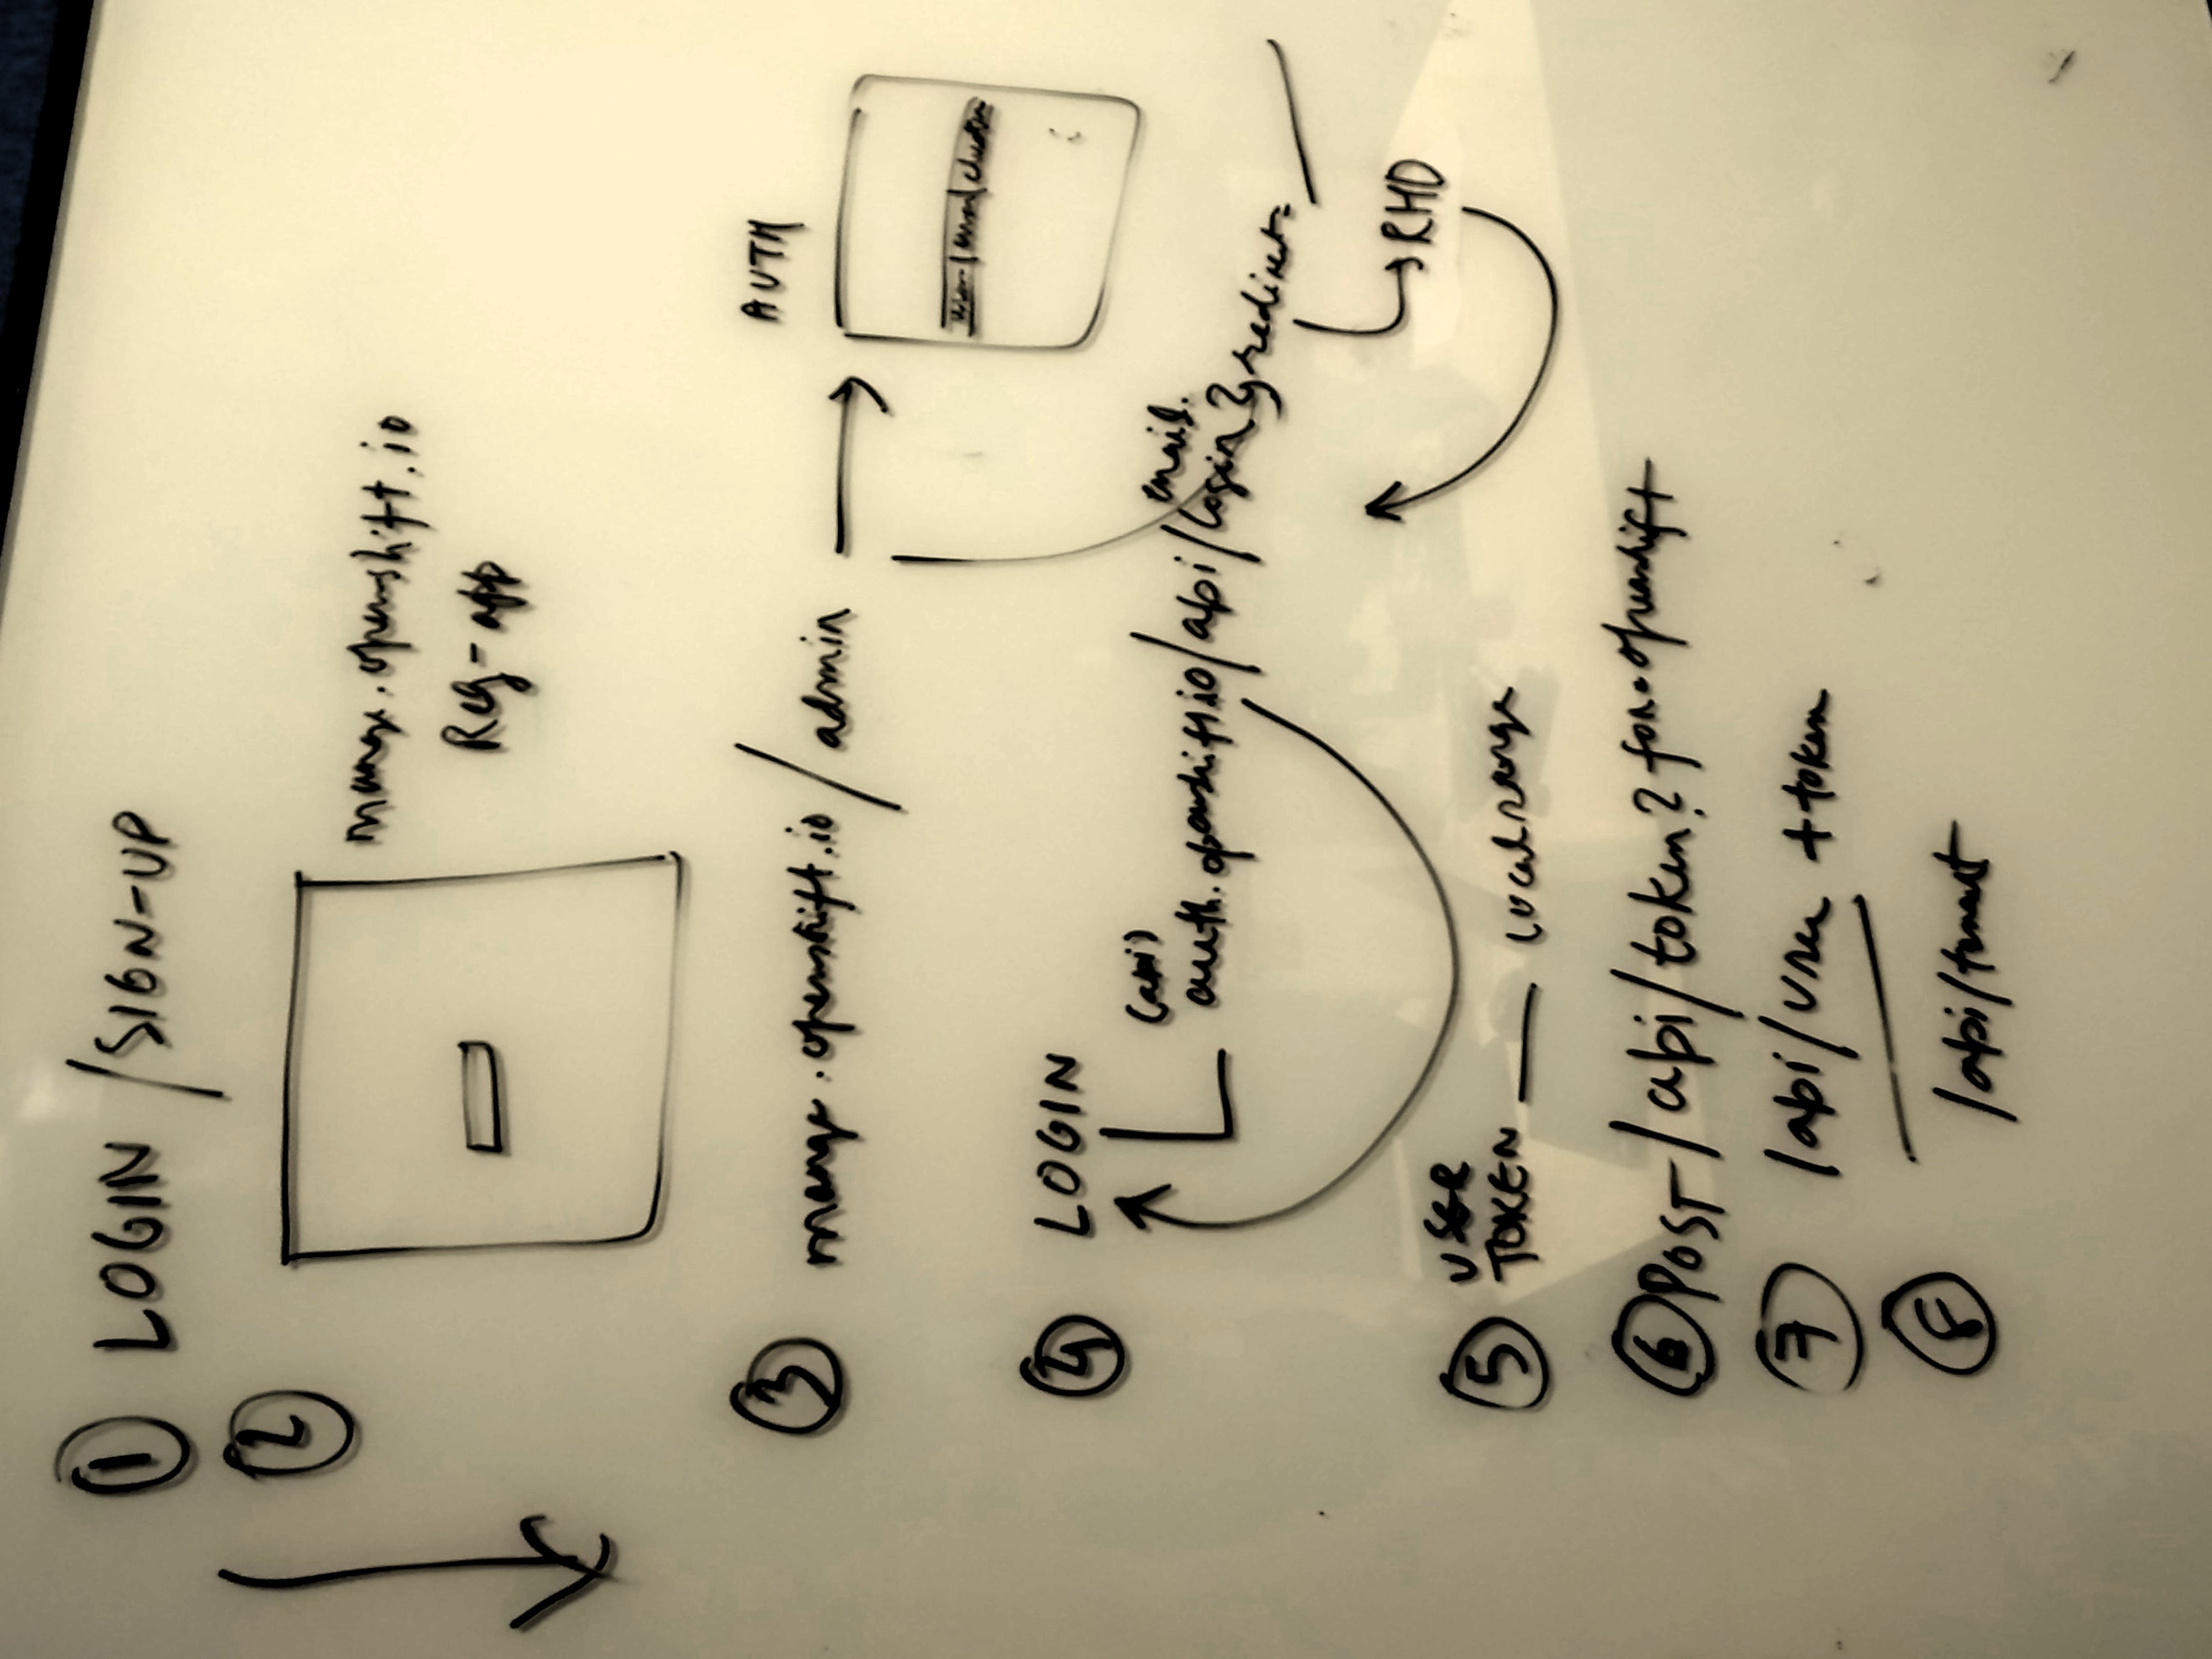 ① LOGIN / SIGN-UP
②
manage.openshift.io
Reg-app
③ manage.openshift.io / admin
AUTH
user | email | cluster
④ LOGIN
(api)
email.
auth.openshift.io/api/login?redirect=
RHD
⑤ USER
TOKEN — Localstorage
⑥ POST /api/token?for=openshift
⑦ /api/user + token
⑧ /api/tenant